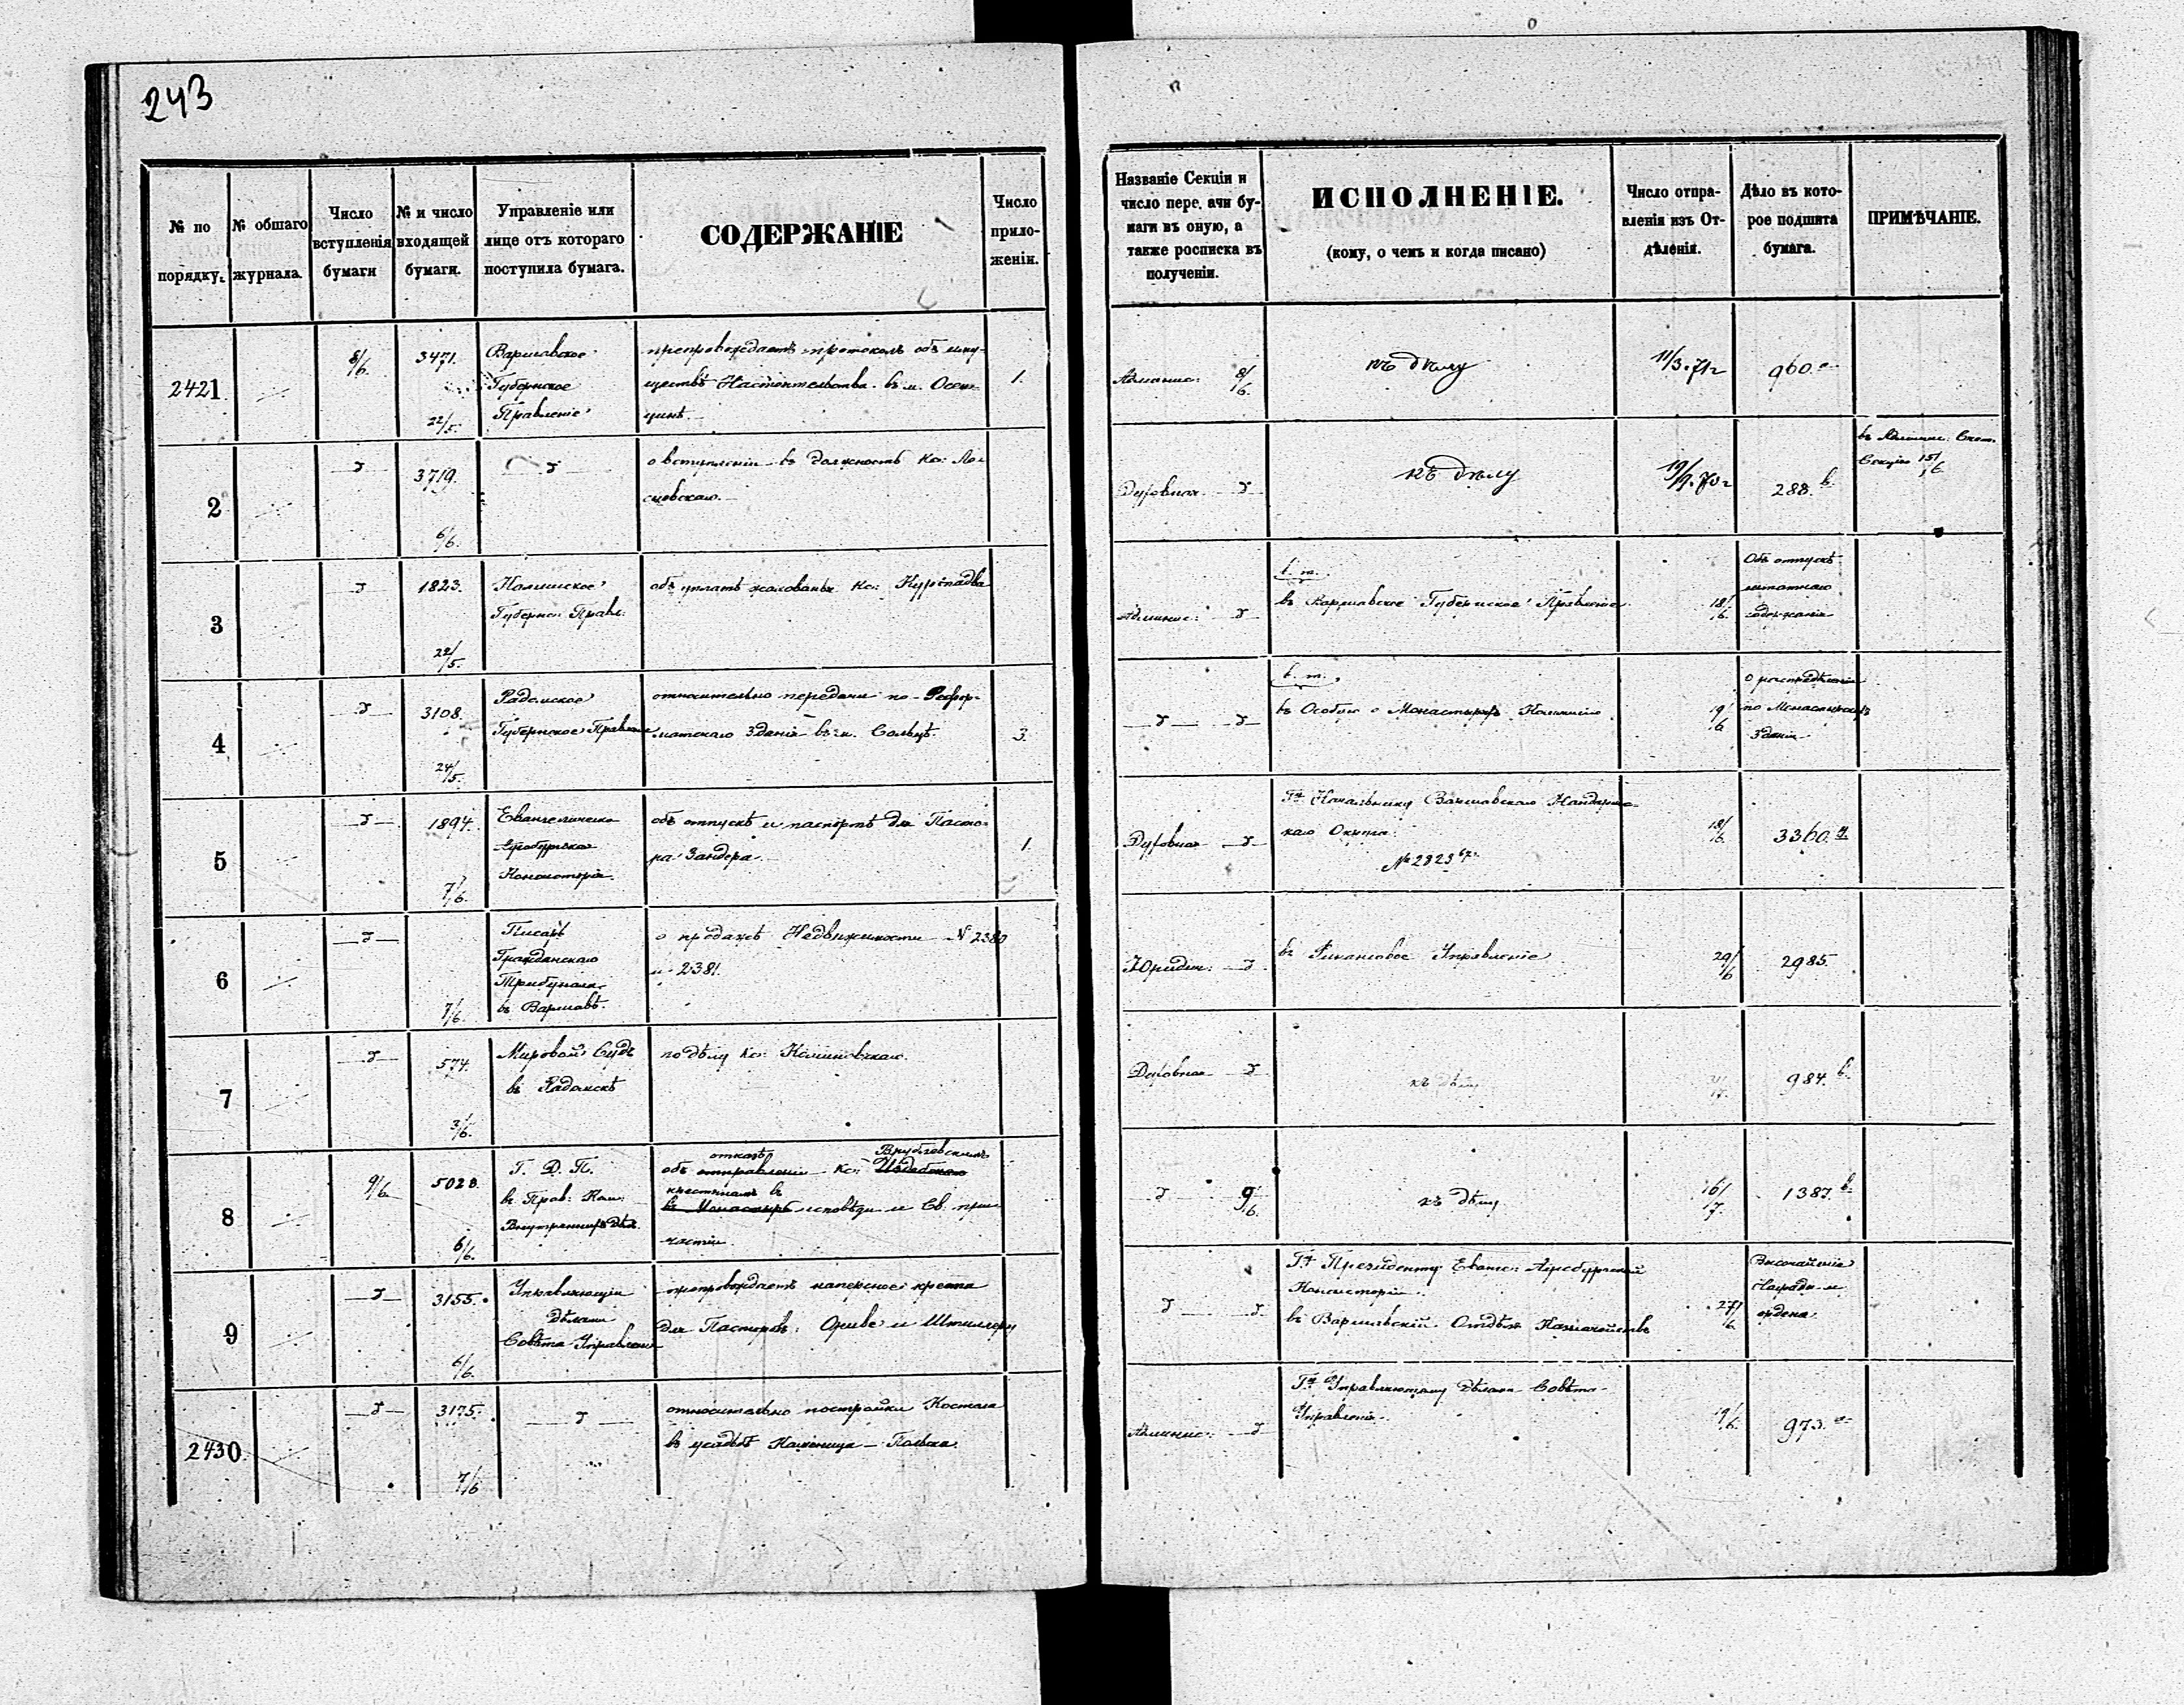 243
№ по порядку.
№ общаго журнала.
Число вступленія бумаги
№ и число входящей бумаги.
Управленіе или лице отъ котораго поступила бумага.
СОДЕРЖАНІЕ
Число приложеніи.
Названіе Секціи и число пере. ачи бумаги въ оную, а также росписка въ полученіи.
ИСПОЛНЕНІЕ.
(кому, о чемъ и когда писано)
Число отправленія изъ Отдѣленія.
Дѣло въ которое подшита бумага.
ПРИМѢЧАНІЕ.
2421
8/6
3471.
22/5.
Варшавское
Губернское
Правленіе
препровождаетъ протоколъ объ иму-
ществѣ Настоятельства въ м. Осен-
цинѣ.
1.
Админис: 8/6.
къ дѣлу
11/3.71г
960.
2
3719.
6/6.
о вступленіи въ должность Кс:
Духовная
къ дѣлу
288. в.
въ Админис:
Секцію 15/6
3
1823.
22/5.
Калишское
Губернск Правл:
объ уплатѣ жалованья Кс:
Админис:
в. т.
въ Варшавское Губернское Правленіе
18/6.
Объ отпускѣ
штатнаго
содержанія
4
3108.
24/5.
Радомское
Губернское Правленіе
относительно передачи по-Рефор-
матскаго зданія въ м. Сольцѣ.
3.
в. т.
въ Особую о Монастыряхъ Коммисію
19/6
о распредѣленіи
по Монастырскихъ
Зданіи
5
1894.
7/6.
Евангелическо
Аугсбургская
Консисторія
объ отпускѣ и паспортѣ для Пасто-
ра Зандера.
1.
Духовная
Гну Начальнику Варшавскаго Жандармс-
каго Округа
№ 2823
18/6.
3360.
6
7/6.
Писарь
Гражданскаго
Трибунала
въ Варшавѣ.
о продажѣ Недвижимости № 2380
и 2381.
Юридич:
въ Финансовое Управленіе
29/6
2985.
7
574.
3/6.
Мировой Судъ
въ Радомскѣ
по дѣлу Кс: Калиновскаго.
Духовная
къ дѣлу
984. в.
8
9/6.
5028.
6/6.
Г. Д. П.
въ Прав: Ком:
Внутреннихъ Дѣлъ.
отказѣ Врублевскимъ
объ отправленіи Кс:
крестьянамъ въ
въ Монастырь исповѣди и Св. при-
частіи.
9/6.
къ дѣлу
16/7.
1387. в.
9
3155.
6/6.
Управляющій
дѣлами
Совѣта Управленія
препровождаетъ наперсные креста
для Пасторовъ: Орике и Штиллеру
Гну Президенту Еванг: Аугсбургской
Консисторіи.
въ Варшавскій Отдѣлъ Казначейства
27/6
Высочайшіе
Награды и
ордена.
2430.
3175.
7/6
относительно постройки Костела
въ усадьбѣ Каменица - Польска.
Админис:
Гну Управляющему дѣлами Совѣта
Управленія.
19/6.
973.